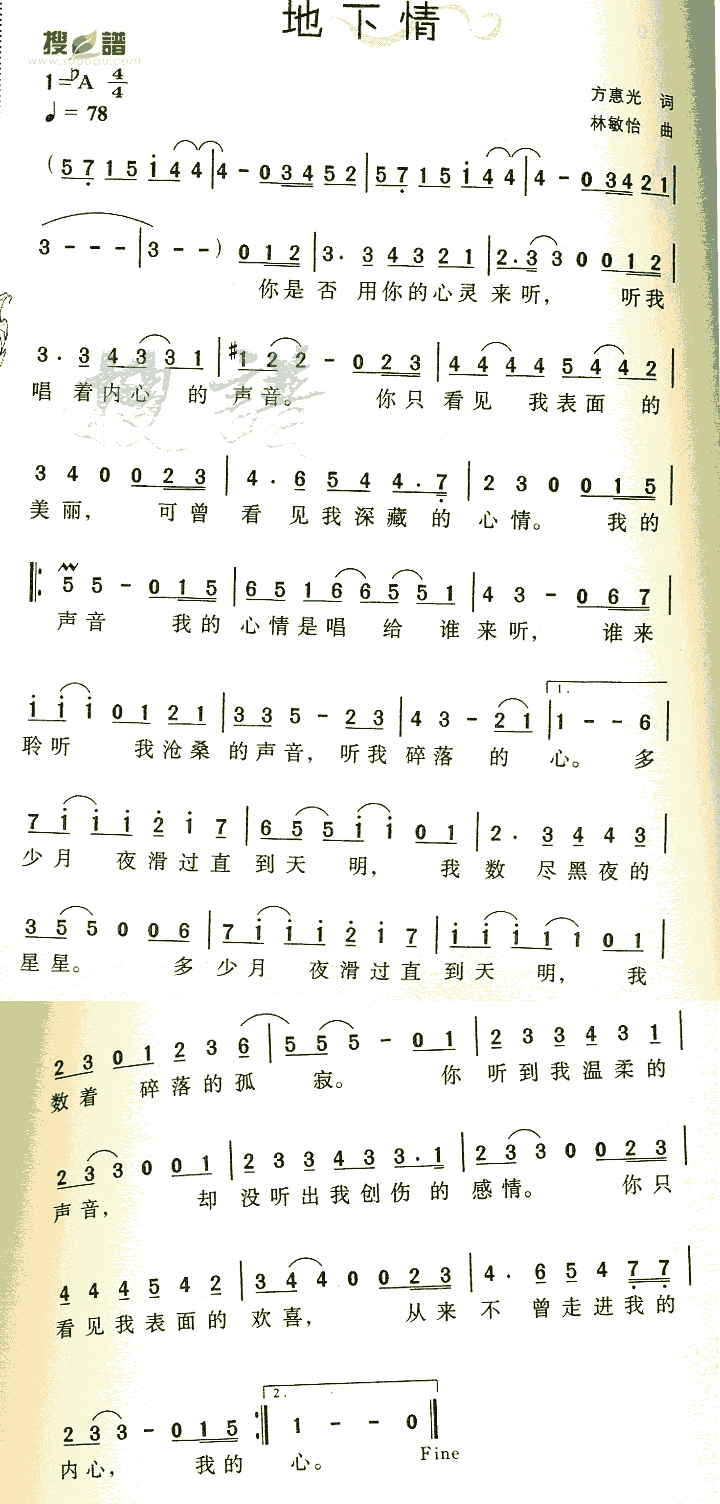 地下情
搜谱
www.sooopu.com
1=♭A 4/4
♩= 78
方惠光 词
林敏怡 曲
(5 7 1 5 i 4 4 | 4 - 0 3 4 5 2 | 5 7 1 5 i 4 4 | 4 - 0 3 4 2 1 |
3 - - - | 3 - - ) 0 1 2 | 3. 3 4 3 2 1 | 2. 3 3 0 0 1 2 |
你是否 用你的心灵来听, 听我
3. 3 4 3 3 1 | #1 2 2 - 0 2 3 | 4 4 4 4 5 4 4 2 |
唱着内心 的声音。 你只看见 我表面的
3 4 0 0 2 3 | 4. 6 5 4 4. 7 | 2 3 0 0 1 5 |
美丽, 可曾看见我深藏的心情。 我的
‖: 5 5 - 0 1 5 | 6 5 1 6 6 5 5 1 | 4 3 - 0 6 7 |
声音 我的心情是唱给谁来听, 谁来
i i i 0 1 2 1 | 3 3 5 - 2 3 | 4 3 - 2 1 | 1. 1 - - 6 |
聆听 我沧桑的声音,听我碎落的心。多
7 i i i 2 i 7 | 6 5 5 i i 0 1 | 2. 3 4 4 3 |
少月 夜滑过直到天 明, 我数尽黑夜的
3 5 5 0 0 6 | 7 i i i 2 i 7 | i i i i i 0 1 |
星星。 多少月 夜滑过直到天 明, 我
2 3 0 1 2 3 6 | 5 5 5 - 0 1 | 2 3 3 4 3 1 |
数着 碎落的孤 寂。 你听到我温柔的
2 3 3 0 0 1 | 2 3 3 4 3 3. 1 | 2 3 3 0 0 2 3 |
声音, 却没听出我创伤的感情。 你只
4 4 4 5 4 2 | 3 4 4 0 0 2 3 | 4. 6 5 4 7 7 |
看见我表面的欢喜, 从来不曾走进我的
2 3 3 - 0 1 5 :‖ 2. 1 - - 0 ‖
内心, 我的心。 Fine